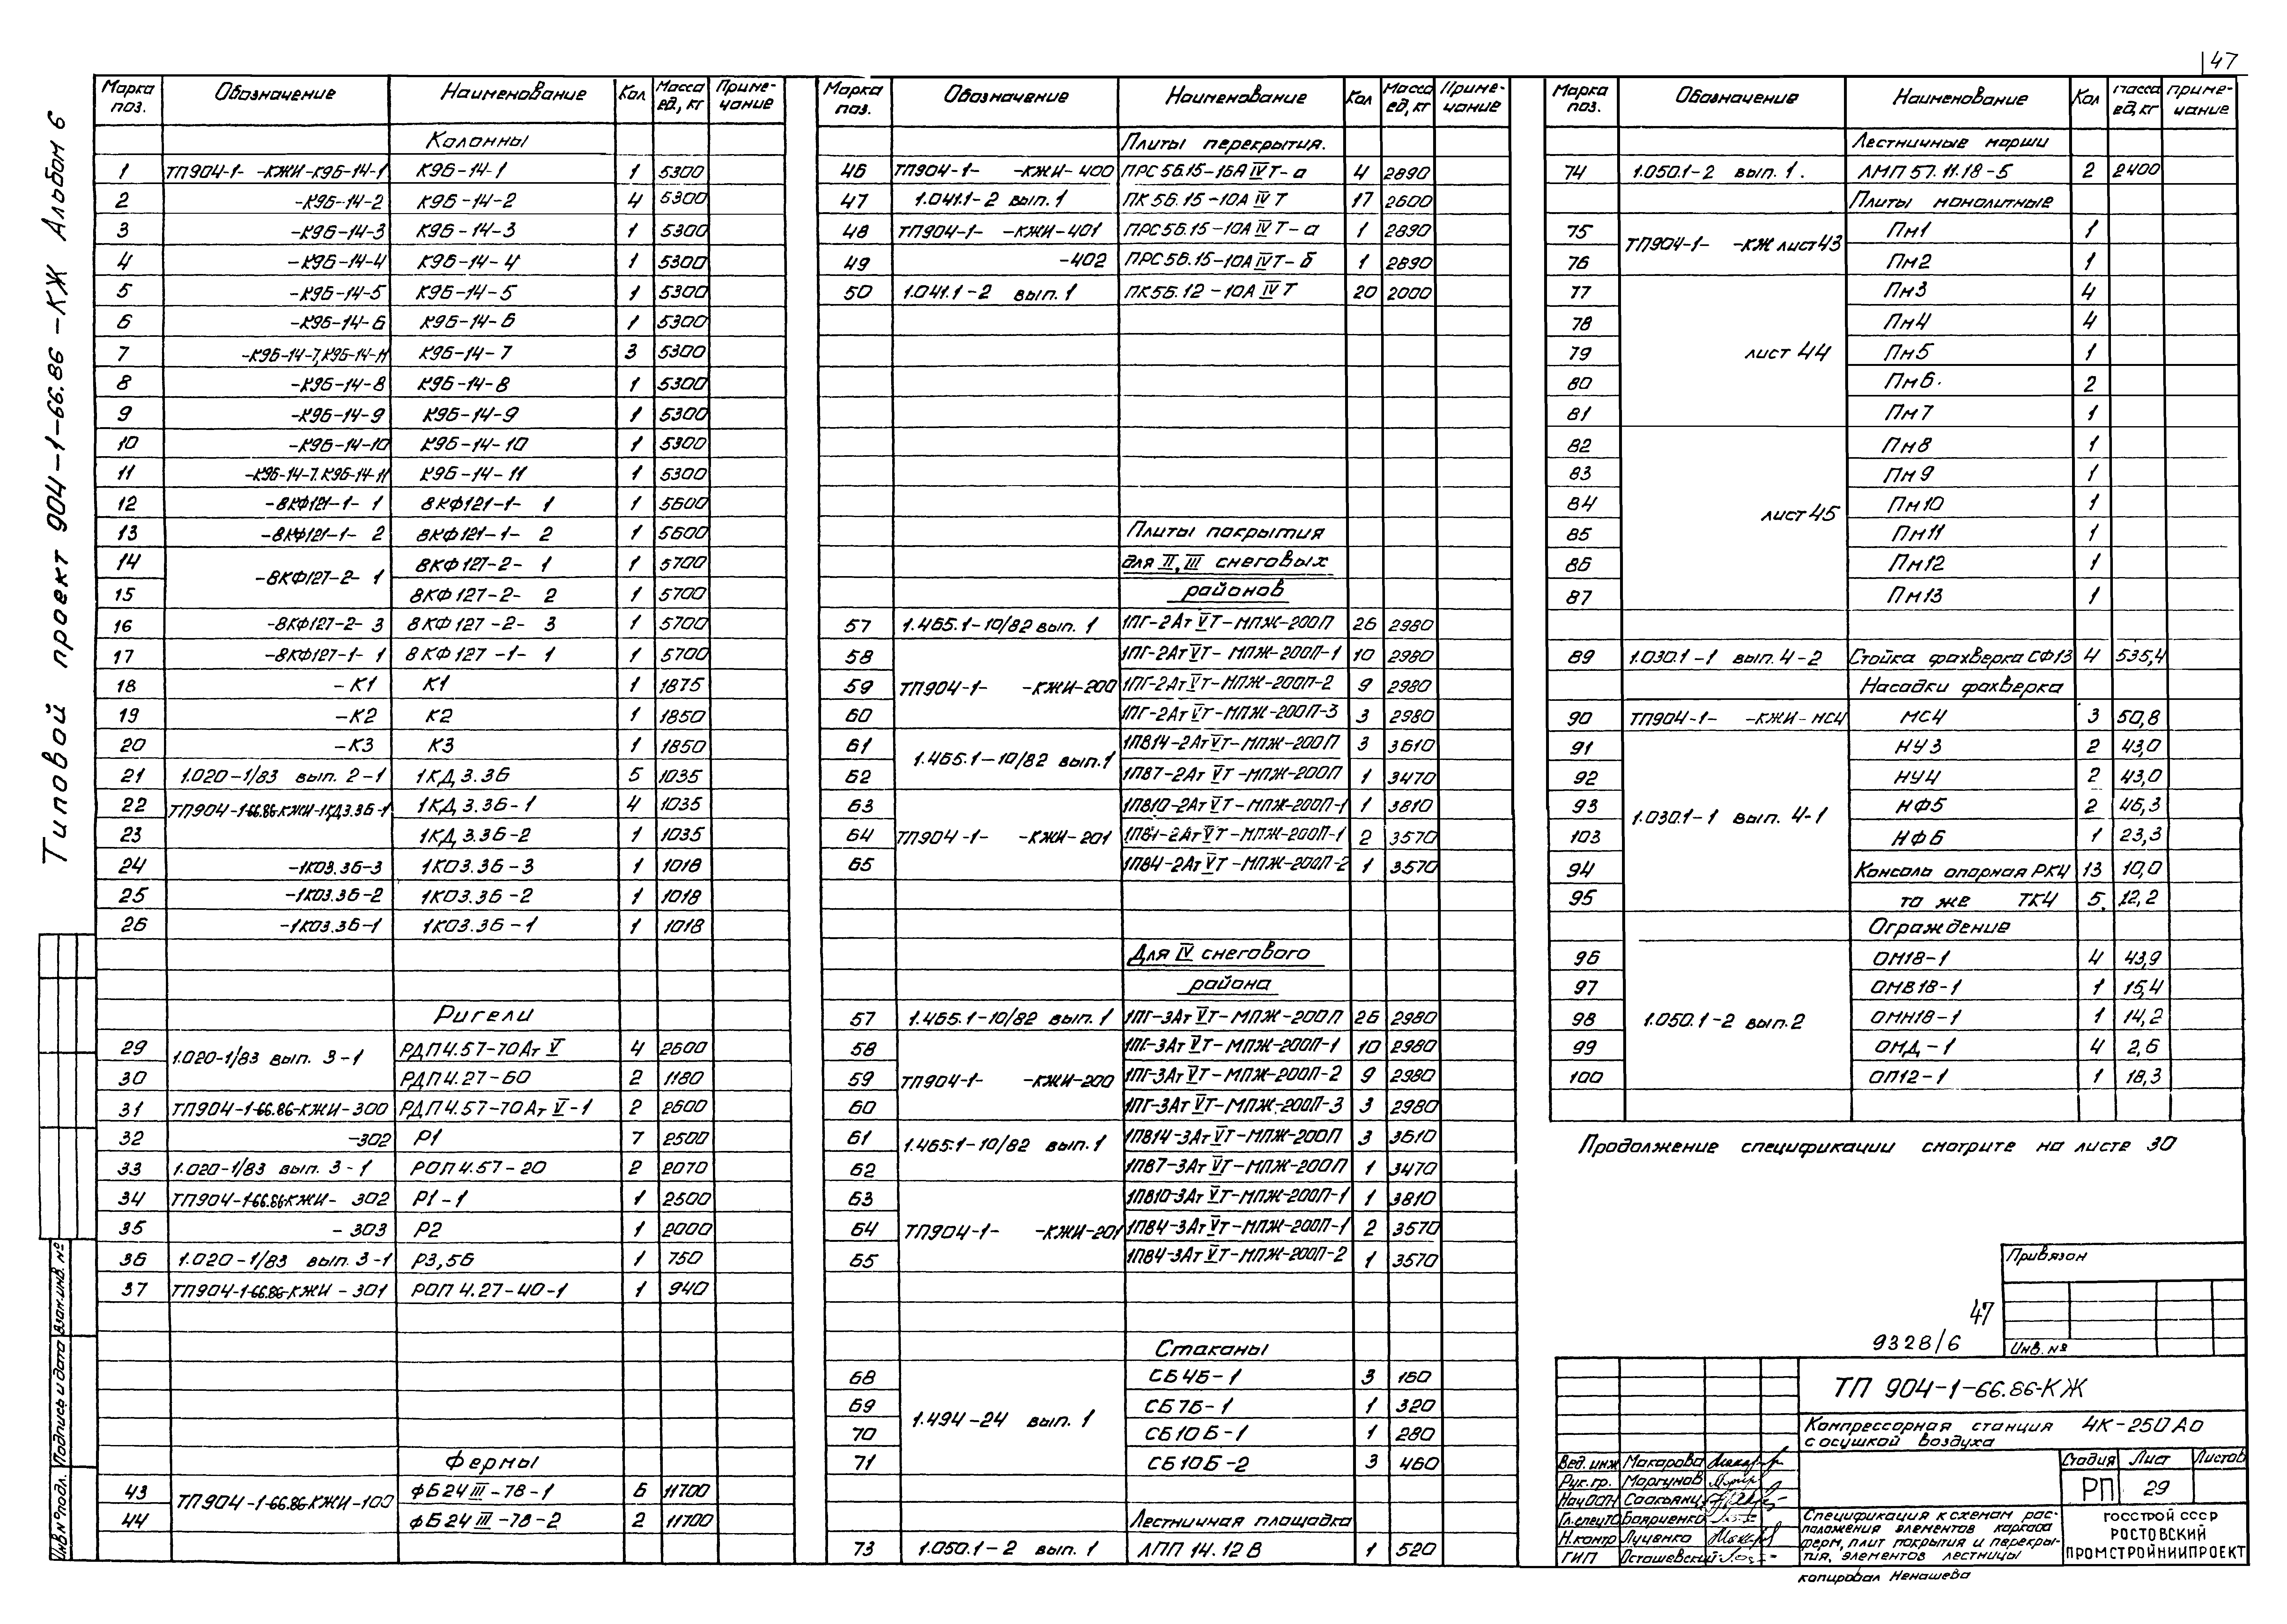 47
Типовой проект 904-1-66.86-КЖ Альбом 6
Марка поз. Обозначение Наименование Кол Масса ед, кг Приме-чание
Колонны
1 ТП904-1- -КЖИ-К96-14-1 К96-14-1 1 5300
2 -К96-14-2 К96-14-2 4 5300
3 -К96-14-3 К96-14-3 1 5300
4 -К96-14-4 К96-14-4 1 5300
5 -К96-14-5 К96-14-5 1 5300
6 -К96-14-6 К96-14-6 1 5300
7 -К96-14-7, К96-14-11 К96-14-7 3 5300
8 -К96-14-8 К96-14-8 1 5300
9 -К96-14-9 К96-14-9 1 5300
10 -К96-14-10 К96-14-10 1 5300
11 -К96-14-7. К96-14-11 К96-14-11 1 5300
12 -8КФ121-1- 1 8КФ121-1- 1 1 5600
13 -8КФ121-1- 2 8КФ121-1- 2 1 5600
14 -8КФ127-2- 1 8КФ127-2- 1 1 5700
15 8КФ127-2- 2 1 5700
16 -8КФ127-2- 3 8КФ127-2- 3 1 5700
17 -8КФ127-1- 1 8КФ127-1- 1 1 5700
18 -К1 К1 1 1875
19 -К2 К2 1 1850
20 -К3 К3 1 1850
21 1.020-1/83 вып. 2-1 1КД3.36 5 1035
22 ТП904-1-66.86-КЖИ-1КД3.36-1 1КД3.36-1 4 1035
23 1КД3.36-2 1 1035
24 -1КО3.36-3 1КО3.36-3 1 1018
25 -1КО3.36-2 1КО3.36-2 1 1018
26 -1КО3.36-1 1КО3.36-1 1 1018
Ригели
29 1.020-1/83 вып. 3-1 РДП4.57-70Ат V 4 2600
30 РДП4.27-60 2 1180
31 ТП904-1-66.86-КЖИ-300 РДП4.57-70Ат V-1 2 2600
32 -302 Р1 7 2500
33 1.020-1/83 вып. 3-1 РОП4.57-20 2 2070
34 ТП904-1-66.86-КЖИ- 302 Р1-1 1 2500
35 - 303 Р2 1 2000
36 1.020-1/83 вып. 3-1 Р3,56 1 750
37 ТП904-1-66.86-КЖИ - 301 РОП 4.27-40-1 1 940
Фермы
43 ТП904-1-66.86-КЖИ-100 ФБ24 III-78-1 6 11700
44 ФБ24 III-78-2 2 11700
Марка поз. Обозначение Наименование Кол Масса ед, кг Приме-чание
Плиты перекрытия.
46 ТП904-1- -КЖИ-400 ПРС56.15-16А IV Т-а 4 2890
47 1.041.1-2 вып. 1 ПК56.15-10А IV Т 17 2600
48 ТП904-1- -КЖИ-401 ПРС56.15-10А IV Т-а 1 2890
49 -402 ПРС56.15-10А IV Т-б 1 2890
50 1.041.1-2 вып. 1 ПК56.12-10А IV Т 20 2000
Плиты покрытия
для II, III снеговых
районов
57 1.465.1-10/82 вып. 1 1ПГ-2Ат V Т-МПЖ-200П 26 2980
58 1ПГ-2Ат V Т-МПЖ-200П-1 10 2980
59 ТП904-1- -КЖИ-200 1ПГ-2Ат V Т-МПЖ-200П-2 9 2980
60 1ПГ-2Ат V Т-МПЖ-200П-3 3 2980
61 1.465.1-10/82 вып. 1 1П814-2Ат V Т-МПЖ-200П 3 3610
62 1П87-2Ат V Т-МПЖ-200П 1 3470
63 1П810-2Ат V Т-МПЖ-200П-1 1 3810
64 ТП904-1- -КЖИ-201 -2Ат V Т-МПЖ-200П-1 2 3570
65 1П84-2Ат V Т-МПЖ-200П-2 1 3570
Для IV снегового
района
57 1.465.1-10/82 вып. 1 1ПГ-3Ат V Т-МПЖ-200П 26 2980
58 1ПГ-3Ат V Т-МПЖ-200П-1 10 2980
59 ТП904-1- -КЖИ-200 1ПГ-3Ат V Т-МПЖ-200П-2 9 2980
60 1ПГ-3Ат V Т-МПЖ-200П-3 3 2980
61 1.465.1-10/82 вып. 1 1П814-3Ат V Т-МПЖ-200П 3 3610
62 1П87-3Ат V Т-МПЖ-200П 1 3470
63 1П810-3Ат V Т-МПЖ-200П-1 1 3810
64 ТП904-1- -КЖИ-201 1П84-3Ат V Т-МПЖ-200П-1 2 3570
65 1П84-3Ат V Т-МПЖ-200П-2 1 3570
Стаканы
68 СБ4Б-1 3 160
69 1.494-24 вып. 1 СБ7Б-1 1 320
70 СБ10Б-1 1 280
71 СБ10Б-2 3 460
Лестничная площадка
73 1.050.1-2 вып. 1 ЛПП 14.12 В 1 520
Марка поз. Обозначение Наименование Кол Масса ед, кг Приме-чание
Лестничные марши
74 1.050.1-2 вып. 1. ЛМП 57.11.18-5 2 2400
Плиты монолитные
75 ТП904-1- -КЖ лист 43 Пм1 1
76 Пм2 1
77 Пм3 4
78 Пм4 4
79 лист 44 Пм5 1
80 Пм6. 2
81 Пм7 1
82 Пм8 1
83 Пм9 1
84 лист 45 Пм10 1
85 Пм11 1
86 Пм12 1
87 Пм13 1
89 1.030.1-1 вып. 4-2 Стойка фахверка СФ13 4 535,4
Насадки фахверка
90 ТП904-1- -КЖИ-МС4 МС4 3 50,8
91 НУ3 2 43,0
92 НУ4 2 43,0
93 1.030.1-1 вып. 4-1 НФ5 2 46,3
103 НФ6 1 23,3
94 Консоль опорная РК4 13 10,0
95 то же ТК4 5 12,2
Ограждение
96 ОМ18-1 4 43,9
97 ОМВ18-1 1 15,4
98 1.050.1-2 вып. 2 ОМН18-1 1 14,2
99 ОМД-1 4 2,6
100 ОП12-1 1 18,3
Продолжение спецификации смотрите на листе 30
Привязан
47
9328/6
Инв. №
ТП 904-1-66.86-КЖ
Компрессорная станция 4К-250Ао
с осушкой воздуха
Вед. инж Макарова
Рук. гр. Моргунов
Нач ОСП Саакьянц
Гл. спец ТО Бояриенко
Н. контр Луценко
ГИП Осташевский
Стадия Лист Листов
РП 29
Спецификация к схемам рас-
положения элементов каркаса
ферм, плит покрытия и перекры-
тия, элементов лестницы
ГОССТРОЙ СССР
РОСТОВСКИЙ
ПРОМСТРОЙНИИПРОЕКТ
копировал Ненашева
Инв № подл. Подпись и дата Взам. инв. №